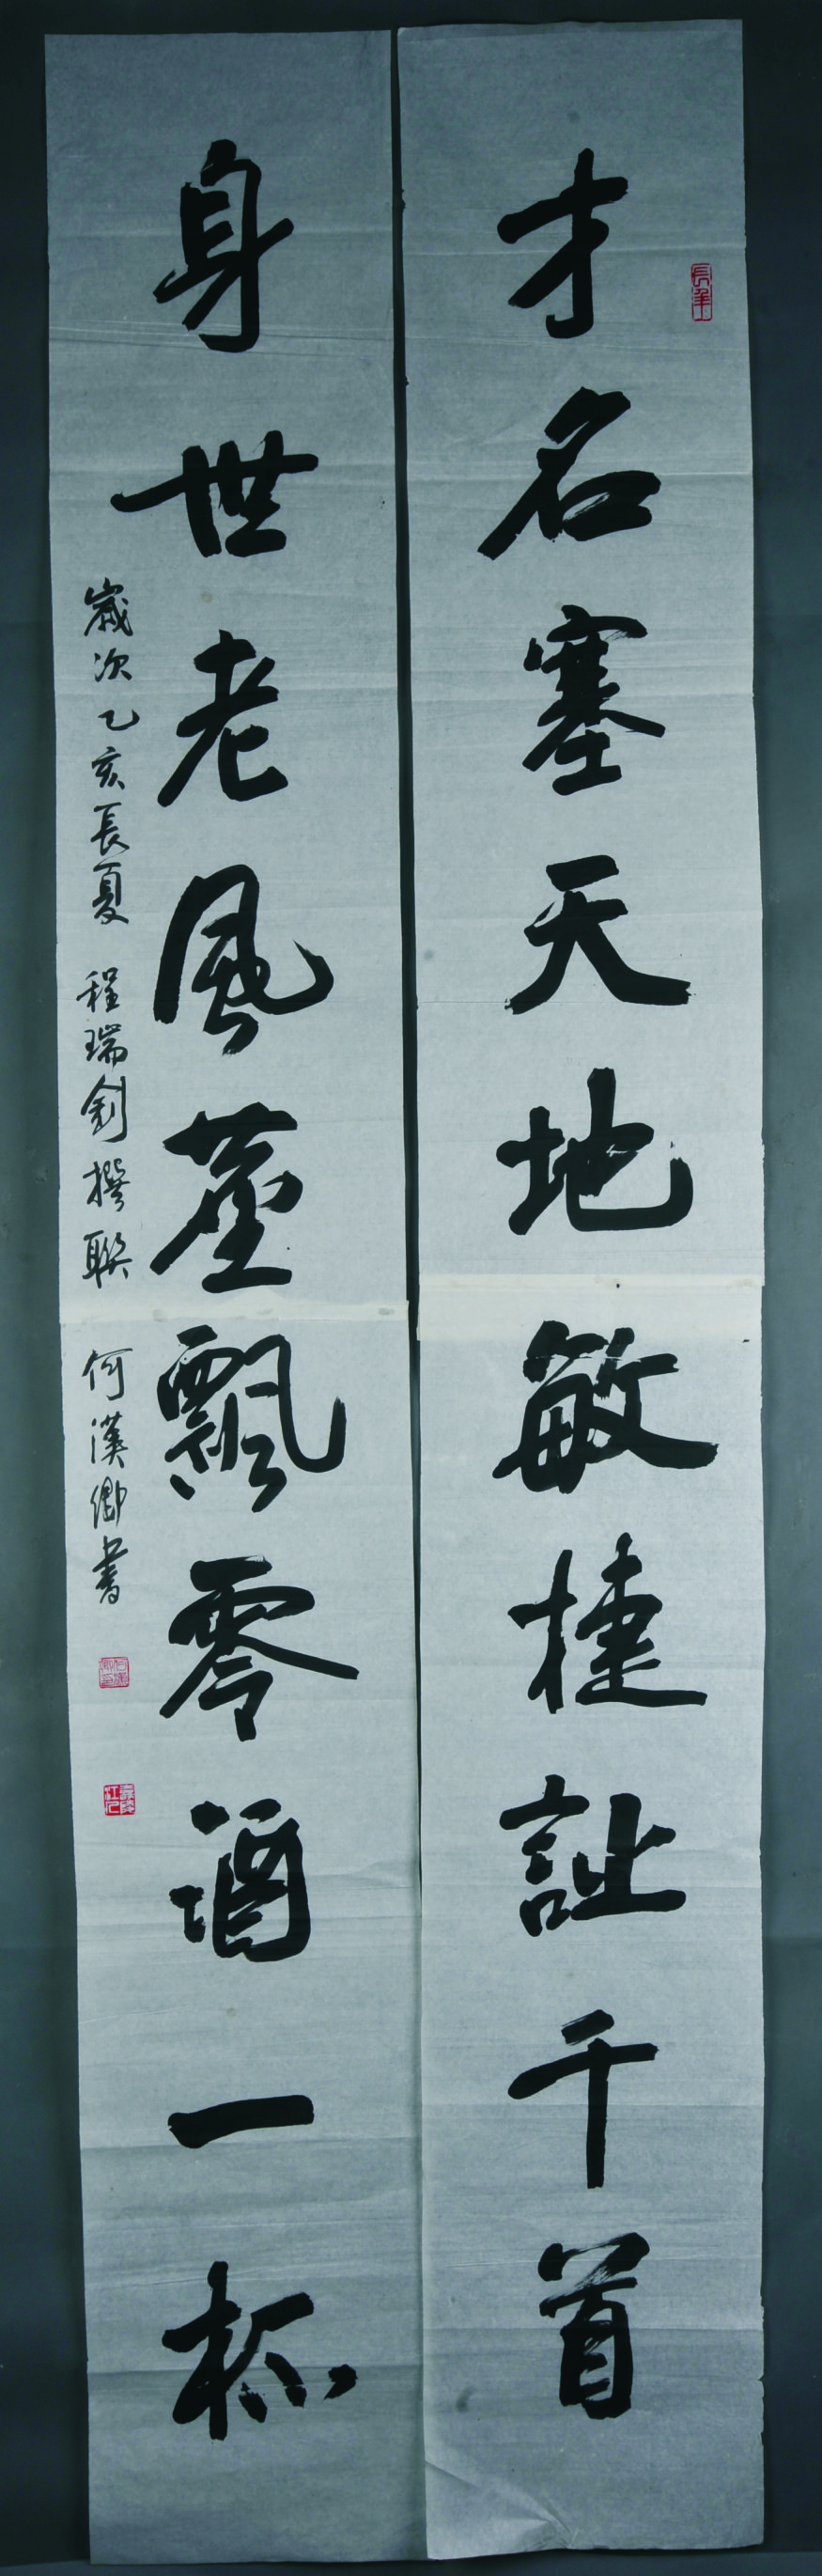 才名塞天地敏捷詩千首
長年
身世老風塵飄零酒一杯
歲次乙亥長夏 程瑞釗撰聯 何漢卿書